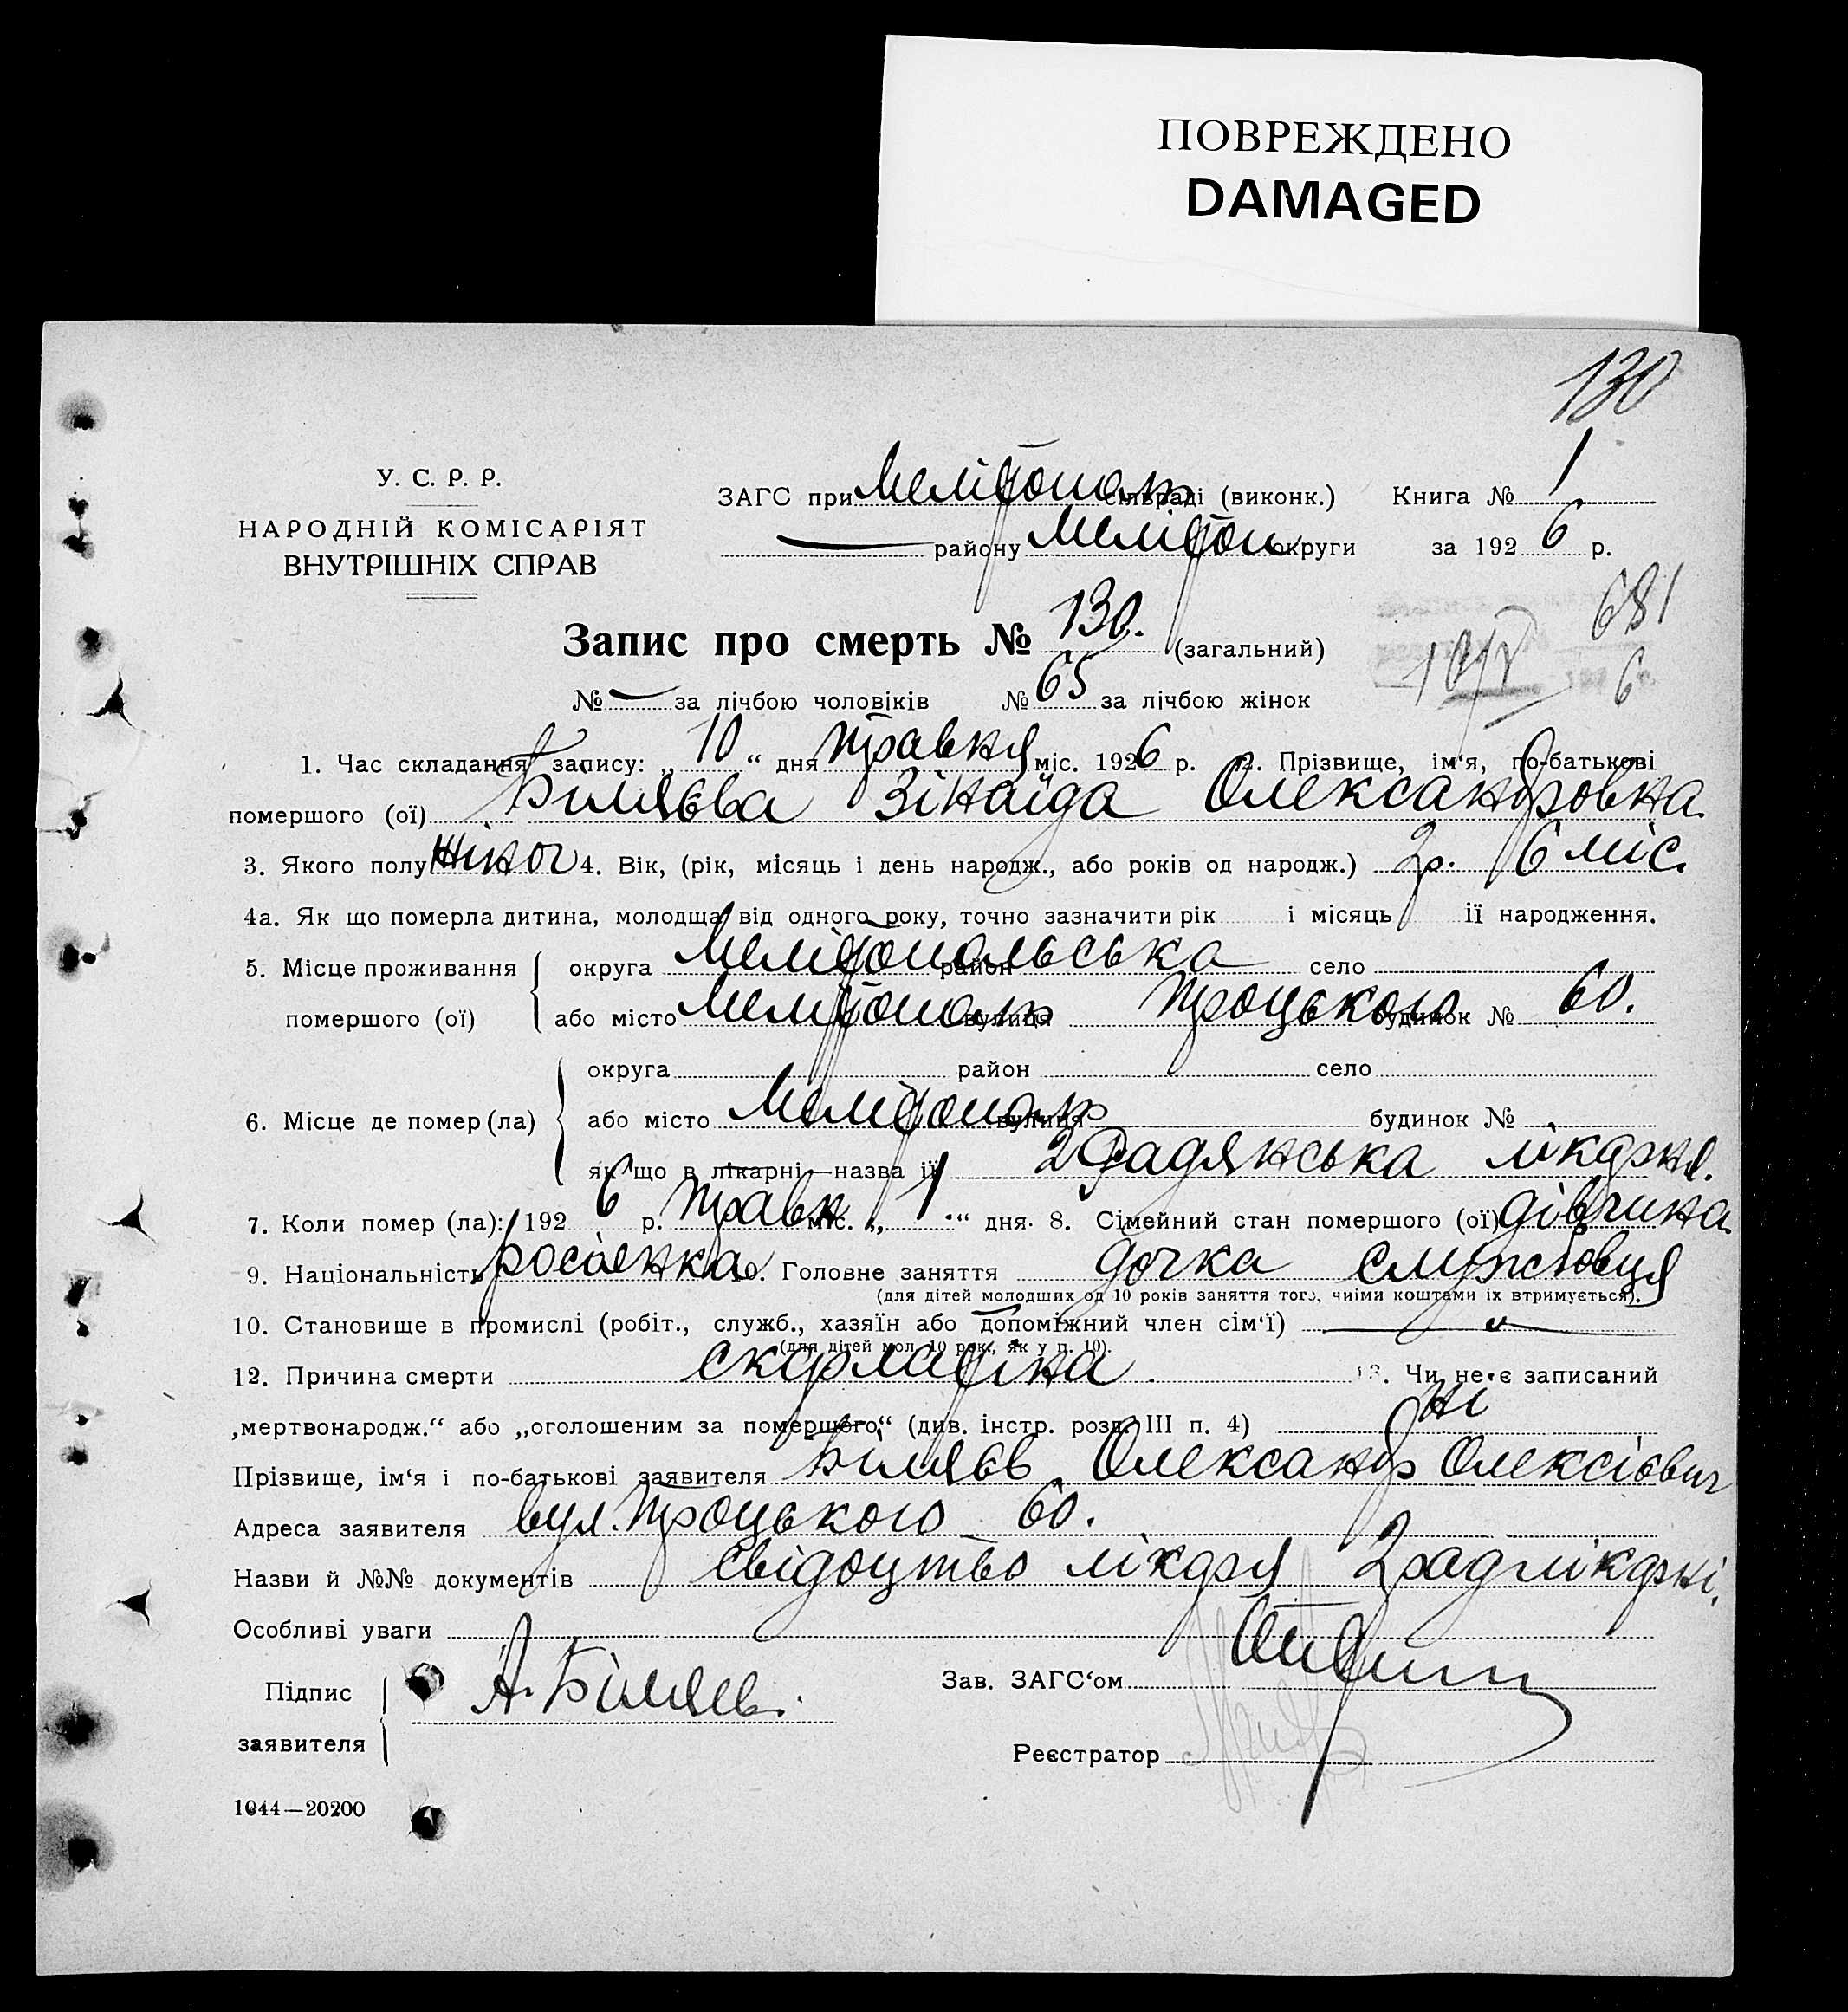 ПОВРЕЖДЕНО
DAMAGED
130
У. С. Р. Р.
НАРОДНІЙ КОМІСАРІЯТ
ВНУТРІШНІХ СПРАВ
ЗАГС при Мелітополь сільраді (виконк.) Книга № 1
— району Мелітоп округи за 1926 р.
681
6
Запис про смерть № 130. (загальний)
№ — за лічбою чоловіків № 65 за лічбою жінок
1. Час складання запису: „ 10 “ дня травня міс. 1926 р. 2. Прізвище, ім‘я, по-батькові
помершого (ої) Біляєва Зінаїда Олександровна
3. Якого полу жіноч 4. Вік, (рік, місяць і день народж., або років од народж.) 2р. 6 міс.
4а. Як що померла дитина, молодща від одного року, точно зазначити рік і місяць її народження.
5. Місце проживання помершого (ої) { округа Мелітопольська район село
або місто Мелітополь вулиця Троцького будинок № 60.
6. Місце де помер (ла) { округа район село
або місто Мелітополь вулиця будинок №
як що в лікарні—назва її 2 радянська лікарня.
7. Коли помер (ла): 1926 р. травн міс. „ 1 “ дня. 8. Сімейний стан помершого (ої) дівчина
9. Національність росіянка 10. Головне заняття дочка служтовця
(для дітей молодших од 10 років заняття того, чиїми коштами їх втримується).
10. Становище в промислі (робіт., служб., хазяїн або допоміжний член сім‘ї) —
(для дітей мол. 10 рок., як у п. 10).
12. Причина смерти скарлатина 13. Чи не є записаний
„мертвонародж.“ або „оголошеним за померщого“ (див. інстр. розд. III п. 4) ні
Прізвище, ім‘я і по-батькові заявителя Біляєв Олександр Олексієвич
Адреса заявителя вул. Троцького 60.
Назви й №№ документів свідоцтво лікаря 2 радлікарні.
Особливі уваги
Підпис заявителя А. Біляев. Зав. ЗАГС‘ом
Реєстратор
1044—20200